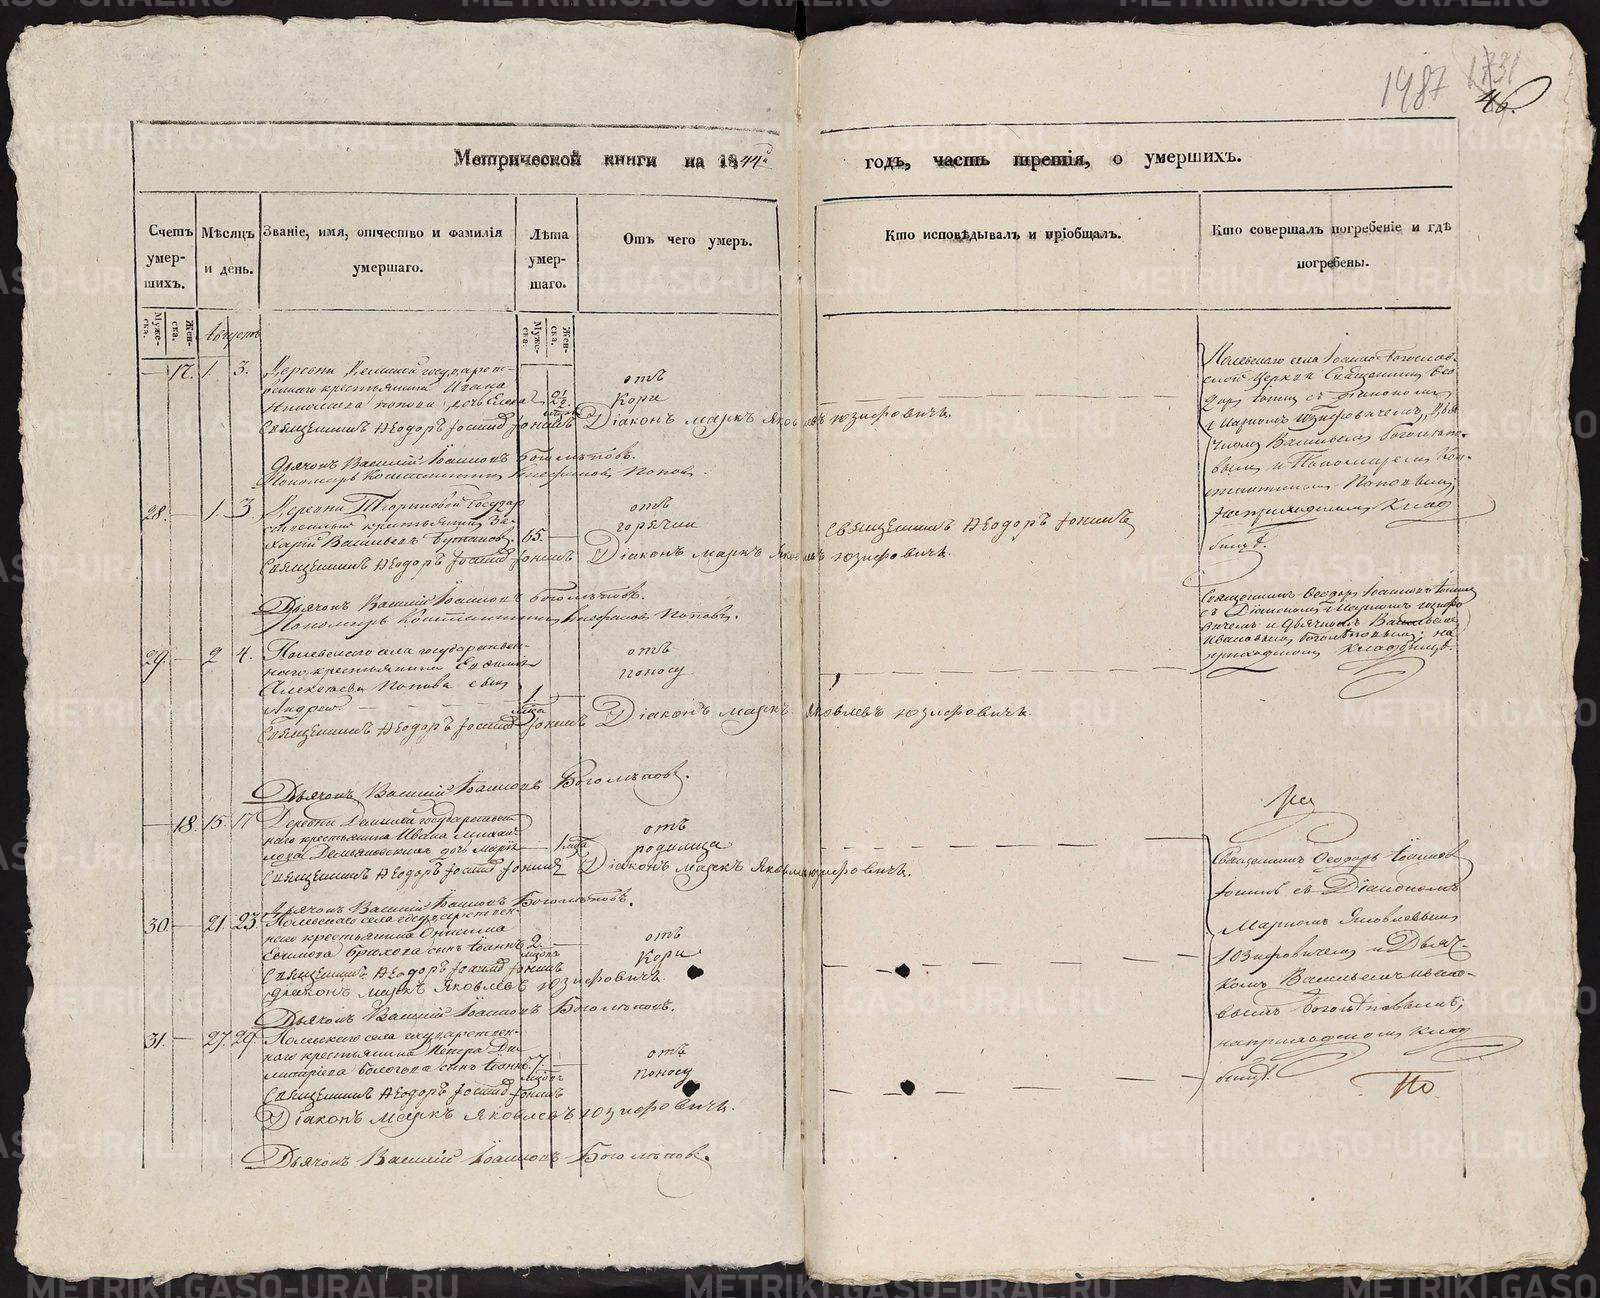 1487 1731
46.
Метрической книги на 1844й
годъ, часть третія, о умершихъ.
Счетъ умер- шихъ.
Мѣсяцъ и день.
Званіе, имя, отчество и фамилія умершаго.
Лѣта умер- шаго.
Отъ чего умеръ.
Кто исповѣдывалъ и пріобщалъ.
Кто совершалъ погребеніе и гдѣ погребены.
Муже- ска.
Жен- ска.
Августъ
Муже- ска.
Жен- ска.
17. 1. 3.
Деревни государст-
веннаго крестьянина Ивана
Николаева Попова дочь Елена
2½
отъ
Кори
Священникъ Ѳеодоръ Діаконъ Маркъ Яковлевъ Юзифовичъ.
Дьячокъ Василій Іоанновъ Боголѣповъ.
Пономарь Константинъ Попов.
Полевскаго села Іоанно-Богослов-
ской церкви Священникъ Ѳео-
доръ съ Діакономъ
Маркомъ Юзифовичемъ, Дья-
чкомъ Василіемъ Боголѣпо-
вымъ и Пономаремъ Кон-
стантиномъ Поповымъ;
на приходскомъ клад-
бищѣ.
28. 1 3
Деревни Государ-
ственный крестьянинъ За-
харій Васильевъ
65.
отъ
горячки
Священникъ Ѳеодоръ
Священникъ Ѳеодоръ Діаконъ Маркъ Яковлевъ Юзифовичъ.
Дьячокъ Василій Іоанновъ Боголѣповъ.
Пономарь Константинъ Поповъ.
Священникъ Ѳеодоръ Іоанновъ
съ Діакономъ Маркомъ Юзифо-
вичемъ и Дьячкомъ Василіемъ
Ивановымъ Боголѣповымъ; на
приходскомъ кладбищѣ.
29. 2 4.
Полевскаго села государствен-
наго крестьянина Евдоким
Алексѣева Попова сынъ
Андрей
1
отъ
поносу
Священникъ Ѳеодоръ Діаконъ Маркъ Яковлевъ Юзифовичъ.
Дьячокъ Василій Іоанновъ Боголѣповъ.
18. 15. 17
Деревни государствен-
наго крестьянина Ивана Михаи-
лова дочь Марія
1
отъ
родимца
Священникъ Ѳеодоръ Діаконъ Маркъ Яковлевъ Юзифовичъ.
Дьячокъ Василій Іоанновъ Боголѣповъ.
Священникъ Ѳеодоръ Іоанновъ
съ Діакономъ
Маркомъ Яковлевымъ
Юзифовичемъ и Дьяч-
комъ Василіемъ Ивано-
вымъ Боголѣповымъ;
на приходскомъ клад-
бищѣ.
30. 21. 23.
Полевскаго села государствен-
наго крестьянина Онисима
сынъ Іоаннъ
2.
отъ
Кори
Священникъ Ѳеодоръ
Діаконъ Маркъ Яковлевъ Юзифовичъ
Дьячокъ Василій Іоанновъ Боголѣповъ.
31. 27. 29.
Полевскаго села государствен-
наго крестьянина Петра Ди-
митріева сынъ Іоаннъ
7
отъ
поносу
Священникъ Ѳеодоръ
Діаконъ Маркъ Яковлевъ Юзифовичъ.
Дьячокъ Василій Іоанновъ Боголѣповъ.
По
METRIKI.GASO-URAL.RU